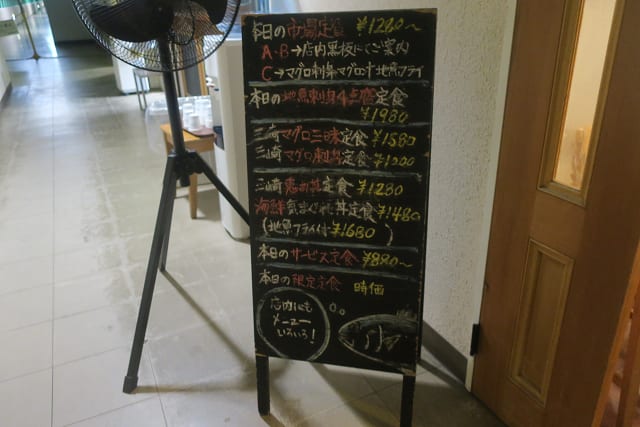 本日の市場定食 ¥1280〜
A・B→店内黒板にてご案内
C→マグロ刺身マグロ寸地魚フライ
本日の地魚刺身4点盛定食
¥1980
三崎マグロ三昧定食 ¥1580
三崎マグロ刺身定食
三崎恵み丼定食 ¥1280
海鮮気まぐれ丼定食 ¥1480
(地魚フライ付 ¥1680)
本日のサービス定食 ¥880〜
本日の限定定食 時価
店内にも
メニュー
いろいろ!